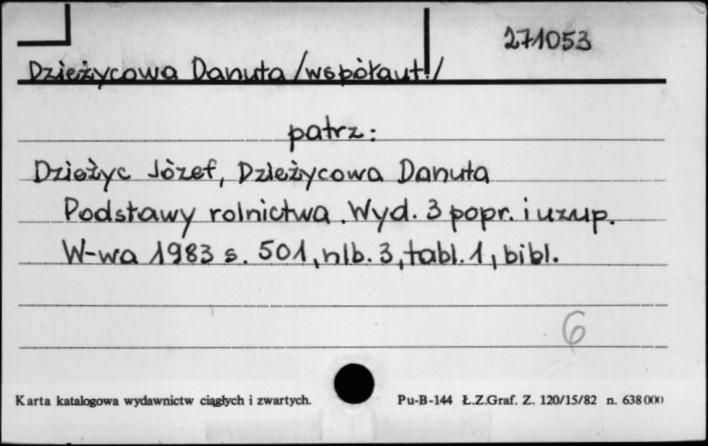 271053
Dzieżycowa Danuta /współaut./
patrz:
Dzieżyc Józef, Dzieżycowa Danuta
Podstawy rolnictwa. Wyd. 3 popr. i uzup.
W-wa 1983 s. 501, nlb. 3, tabl. 1, bibl.
6
Karta katalogowa wydawnictw ciągłych i zwartych. Pu-B-144 Ł.Z.Graf. Z. 120/15/82 n. 638000